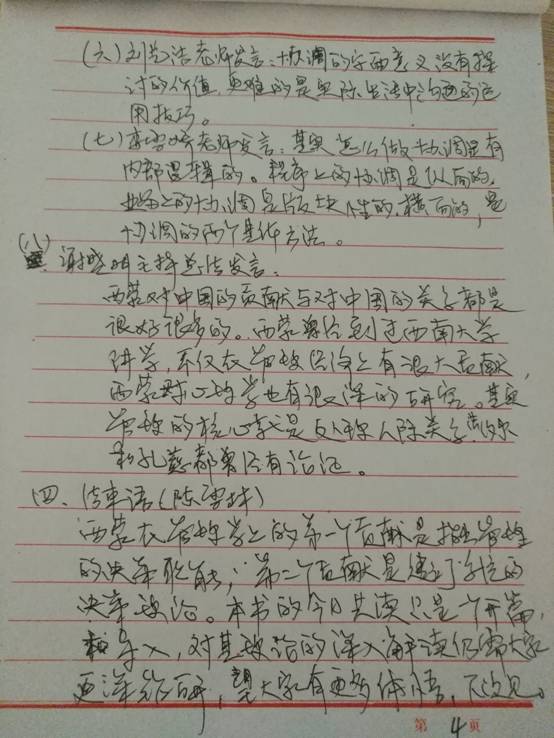 (六)刘总浩老师发言:协调的字面意义没有探
讨的价值,更难的是实际生活中沟通的运
用技巧。
(七)李雪峰老师发言:其实怎么做协调是有
内部逻辑的。程序上的协调是纵向的,
业务上的协调是版块性的,横向的,是
协调的两个基本方法。
(八)谢晓明主持总结发言:
西蒙对中国的贡献与对中国的关系都是
很好很多的。西蒙曾经到过西南大学
讲学,不仅在管理理论上有很大贡献,
西蒙对心理学也有很深的研究。其实
管理的核心就是反映人际关系,
和孔茨都曾经有论述。
四、结束语(陈雪林)
西蒙在管理学上的第一个贡献是指出管理
的决策职能,第二个贡献是建立了系统的
决策理论。本书的今日共读只是一个开篇,
和导入,对其理论的深入解读仍需大家
更深钻研,望大家有更多体悟,下次见。
第 4 页